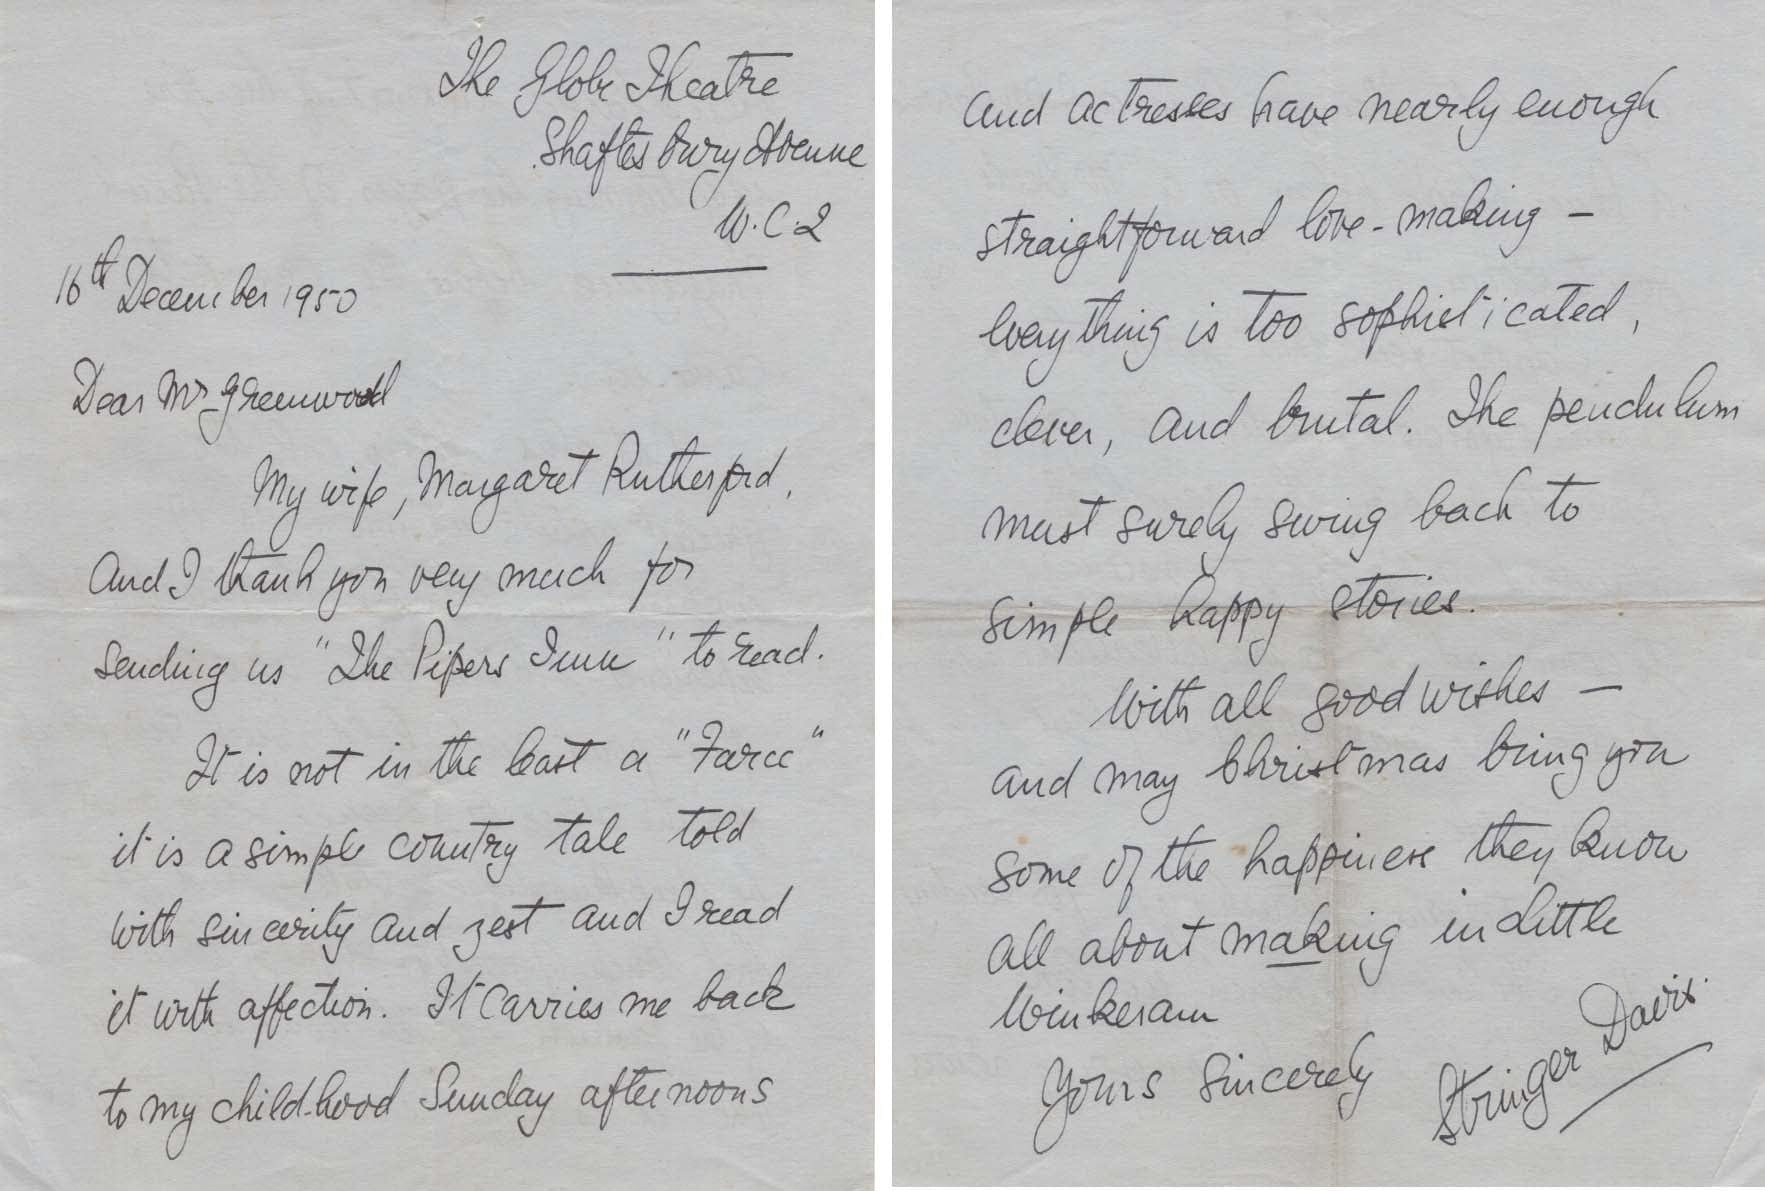 The Globe Theatre
Shaftesbury Avenue
W.C.2
16th December 1950
Dear Mr Greenwood
My wife, Margaret Rutherford,
and I thank you very much for
sending us "The Pipers Inn" to read.
It is not in the least a "Farce"
it is a simple country tale told
with sincerity and zest and I read
it with affection. It carries me back
to my child-hood Sunday afternoons
and actresses have nearly enough
straightforward love-making —
everything is too sophisticated,
clever, and brutal. The pendulum
must surely swing back to
simple happy stories.
With all good wishes —
and may Christmas bring you
some of the happiness they know
all about making in Little
Winkesam
Yours Sincerely
Stringer Davis.